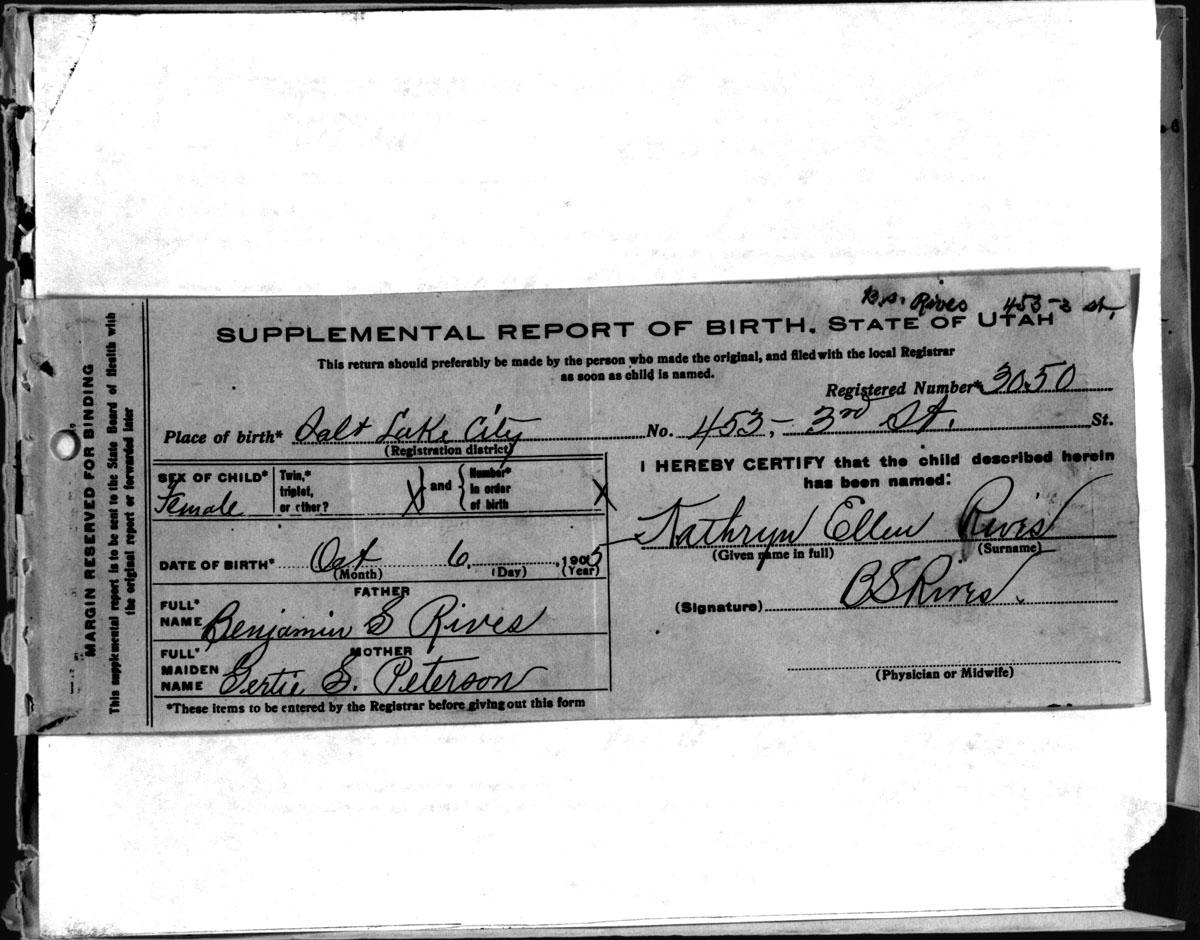 B.S. Rives 453-3 St.
SUPPLEMENTAL REPORT OF BIRTH. STATE OF UTAH
This return should preferably be made by the person who made the original, and filed with the local Registrar
as soon as child is named.
Registered Number* 3050
Place of birth* Salt Lake City No. 453,- 3rd St. St.
(Registration district)
SEX OF CHILD* Female
Twin,*
triplet,
or other? X } and { Number*
in order
of birth X
DATE OF BIRTH* Oct 6, 1905
(Month) (Day) (Year)
FATHER
FULL*
NAME Benjamin S Rives
MOTHER
FULL*
MAIDEN
NAME Gertie S. Peterson
*These items to be entered by the Registrar before giving out this form
I HEREBY CERTIFY that the child described herein
has been named:
Kathryn Ellen Rives
(Given name in full) (Surname)
(Signature) B S Rives.
(Physician or Midwife)
MARGIN RESERVED FOR BINDING
This supplemental report is to be sent to the State Board of Health with
the original report or forwarded later